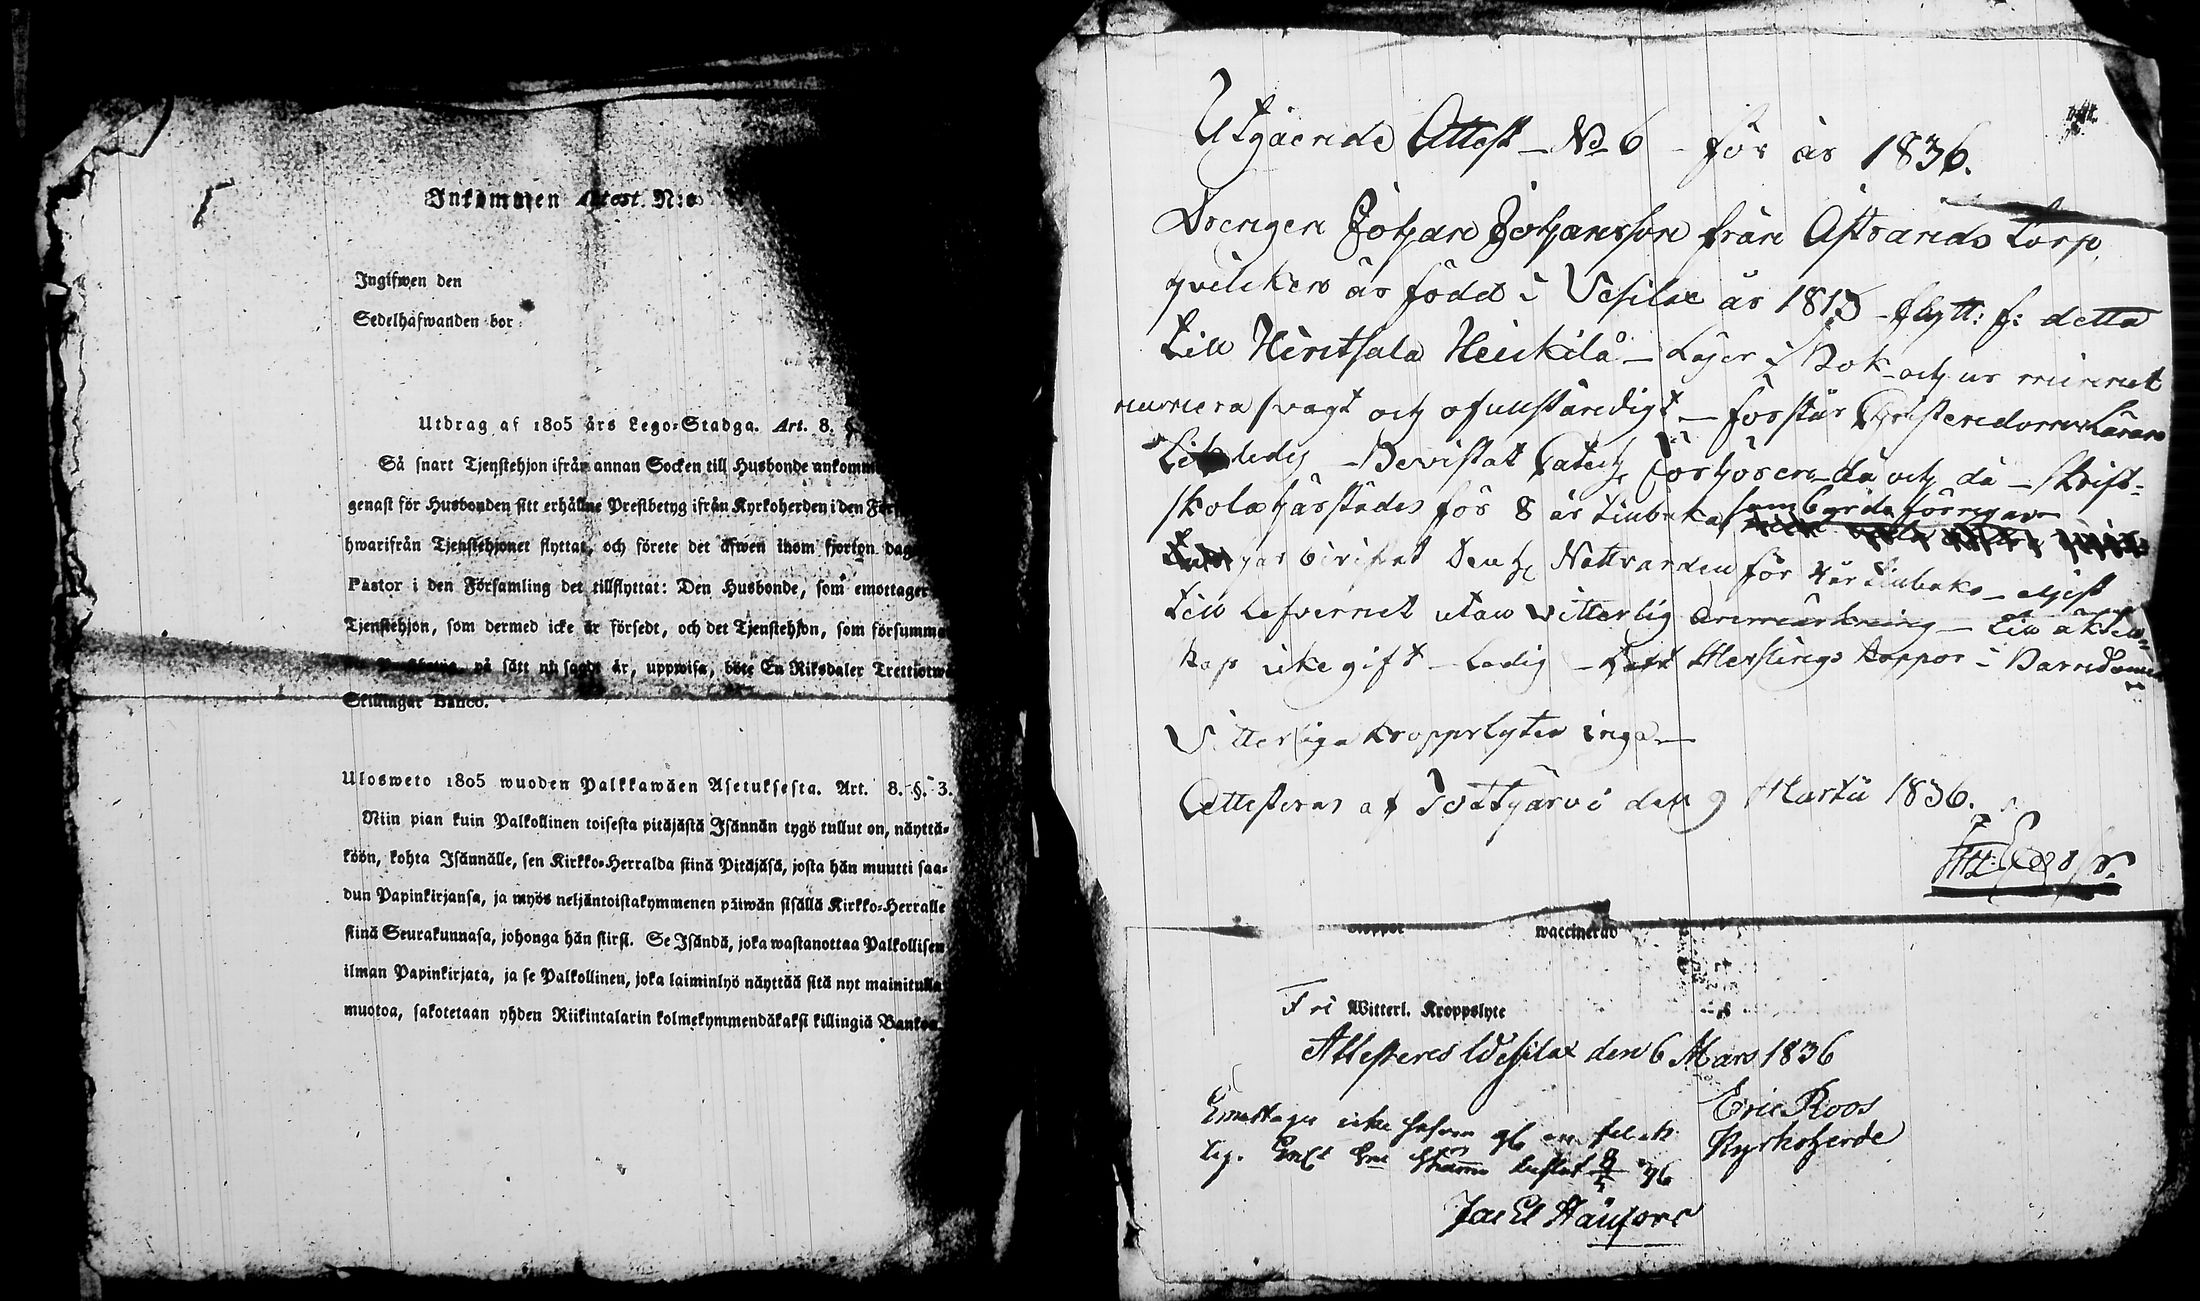 Inkommen Attest N:o
Ingifwen den
Sedelhafwanden bor
Utdrag af 1805 års Lego-Stadga. Art. 8. §
Så snart Tjenstehjon ifrån annan Socken till Husbonde ankomm
genast för Husbonden sitt erhållne Prestbetyg ifrån Kyrkoherden i den För
hwarifrån Tjenstehjonet flyttat, och förete det äfwen inom fjorton dag
Pastor i den Församling det tillflyttat: Den Husbonde, som emottager
Tjenstehjon, som dermed icke är försedt, och det Tjenstehjon, som försumma
på sätt nu sagdt är, uppwisa, böte En Riksdaler Trettiotwå
Skillingar Banco.
Ulosweto 1805 wuoden Palkkawäen Asetuksesta. Art. 8. §. 3.
Niin pian kuin Palkollinen toisesta pitäjästä Isännän tygö tullut on, näyttä-
köön, kohta Isännälle, sen Kirkko-Herralda siinä Pitäjäsä, josta hän muutti saa-
dun Papinkirjansa, ja myös neljäntoistakymmenen päiwän sisällä Kirkko-Herralle
siinä Seurakunnasa, johonga hän siirsi. Se Isändä, joka wastanottaa Palkollisen
ilman Papinkirjata, ja se Palkollinen, joka laiminlyö näyttää sitä nyt mainitulla
muotoa, sakotetaan yhden Riikintalarin kolmekymmendäkaksi killingiä Bankoa.
Utgående Attest No 6 för år 1836.
Drengen Johan Johansson från Astrands torp,
hvilken är född i Vesilax år 1813 flytt: f: detta
till Hintsala Heikkilä - Läser i Bok och ur minnet
numera svagt och ofullständigt - förstår Christendoms Läran
ledig - Bevistat Catech förhören då och då - skrift-
skola härstädes för 8 år tilbaka, som började förregår
har bivistat den H. Nattvarden för 4 år tilbaka - till
till lefvernet utan vitterlig anmärkning - till äkten-
skap icke gift - Ledig - haft Messlings koppor i Barndomen
Vitterliga kroppslyten inga -
Attesteras af Tottijärvi den 9 Martii 1836.
koppor waccinerad
Fri Witterl. Kroppslyte
Attesteras Wesilax den 6 Mars 1836
Eric Roos
Kyrkoherde
Emottages icke såsom